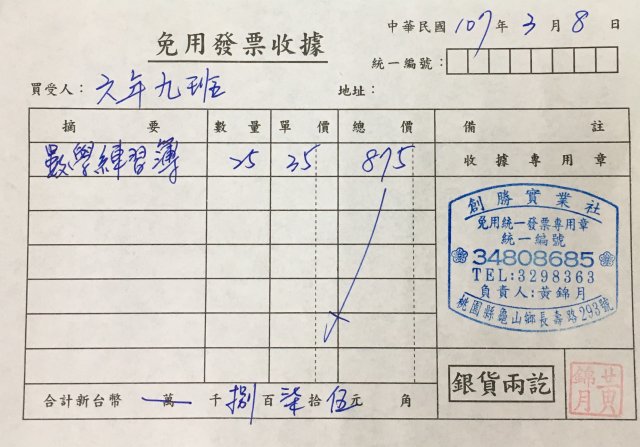 免用發票收據
中華民國 107 年 3 月 8 日
統一編號：
買受人：六年九班 地址：
摘要 數量 單價 總價 備註
數學練習簿 25 35 875 收據專用章
創勝實業社
免用統一發票專用章
統一編號
34808685
TEL:3298363
負責人:黃錦月
桃園縣龜山鄉長壽路293號
銀貨兩訖
錦月
合計新台幣 萬 千 捌 百 柒 拾 伍 元 角